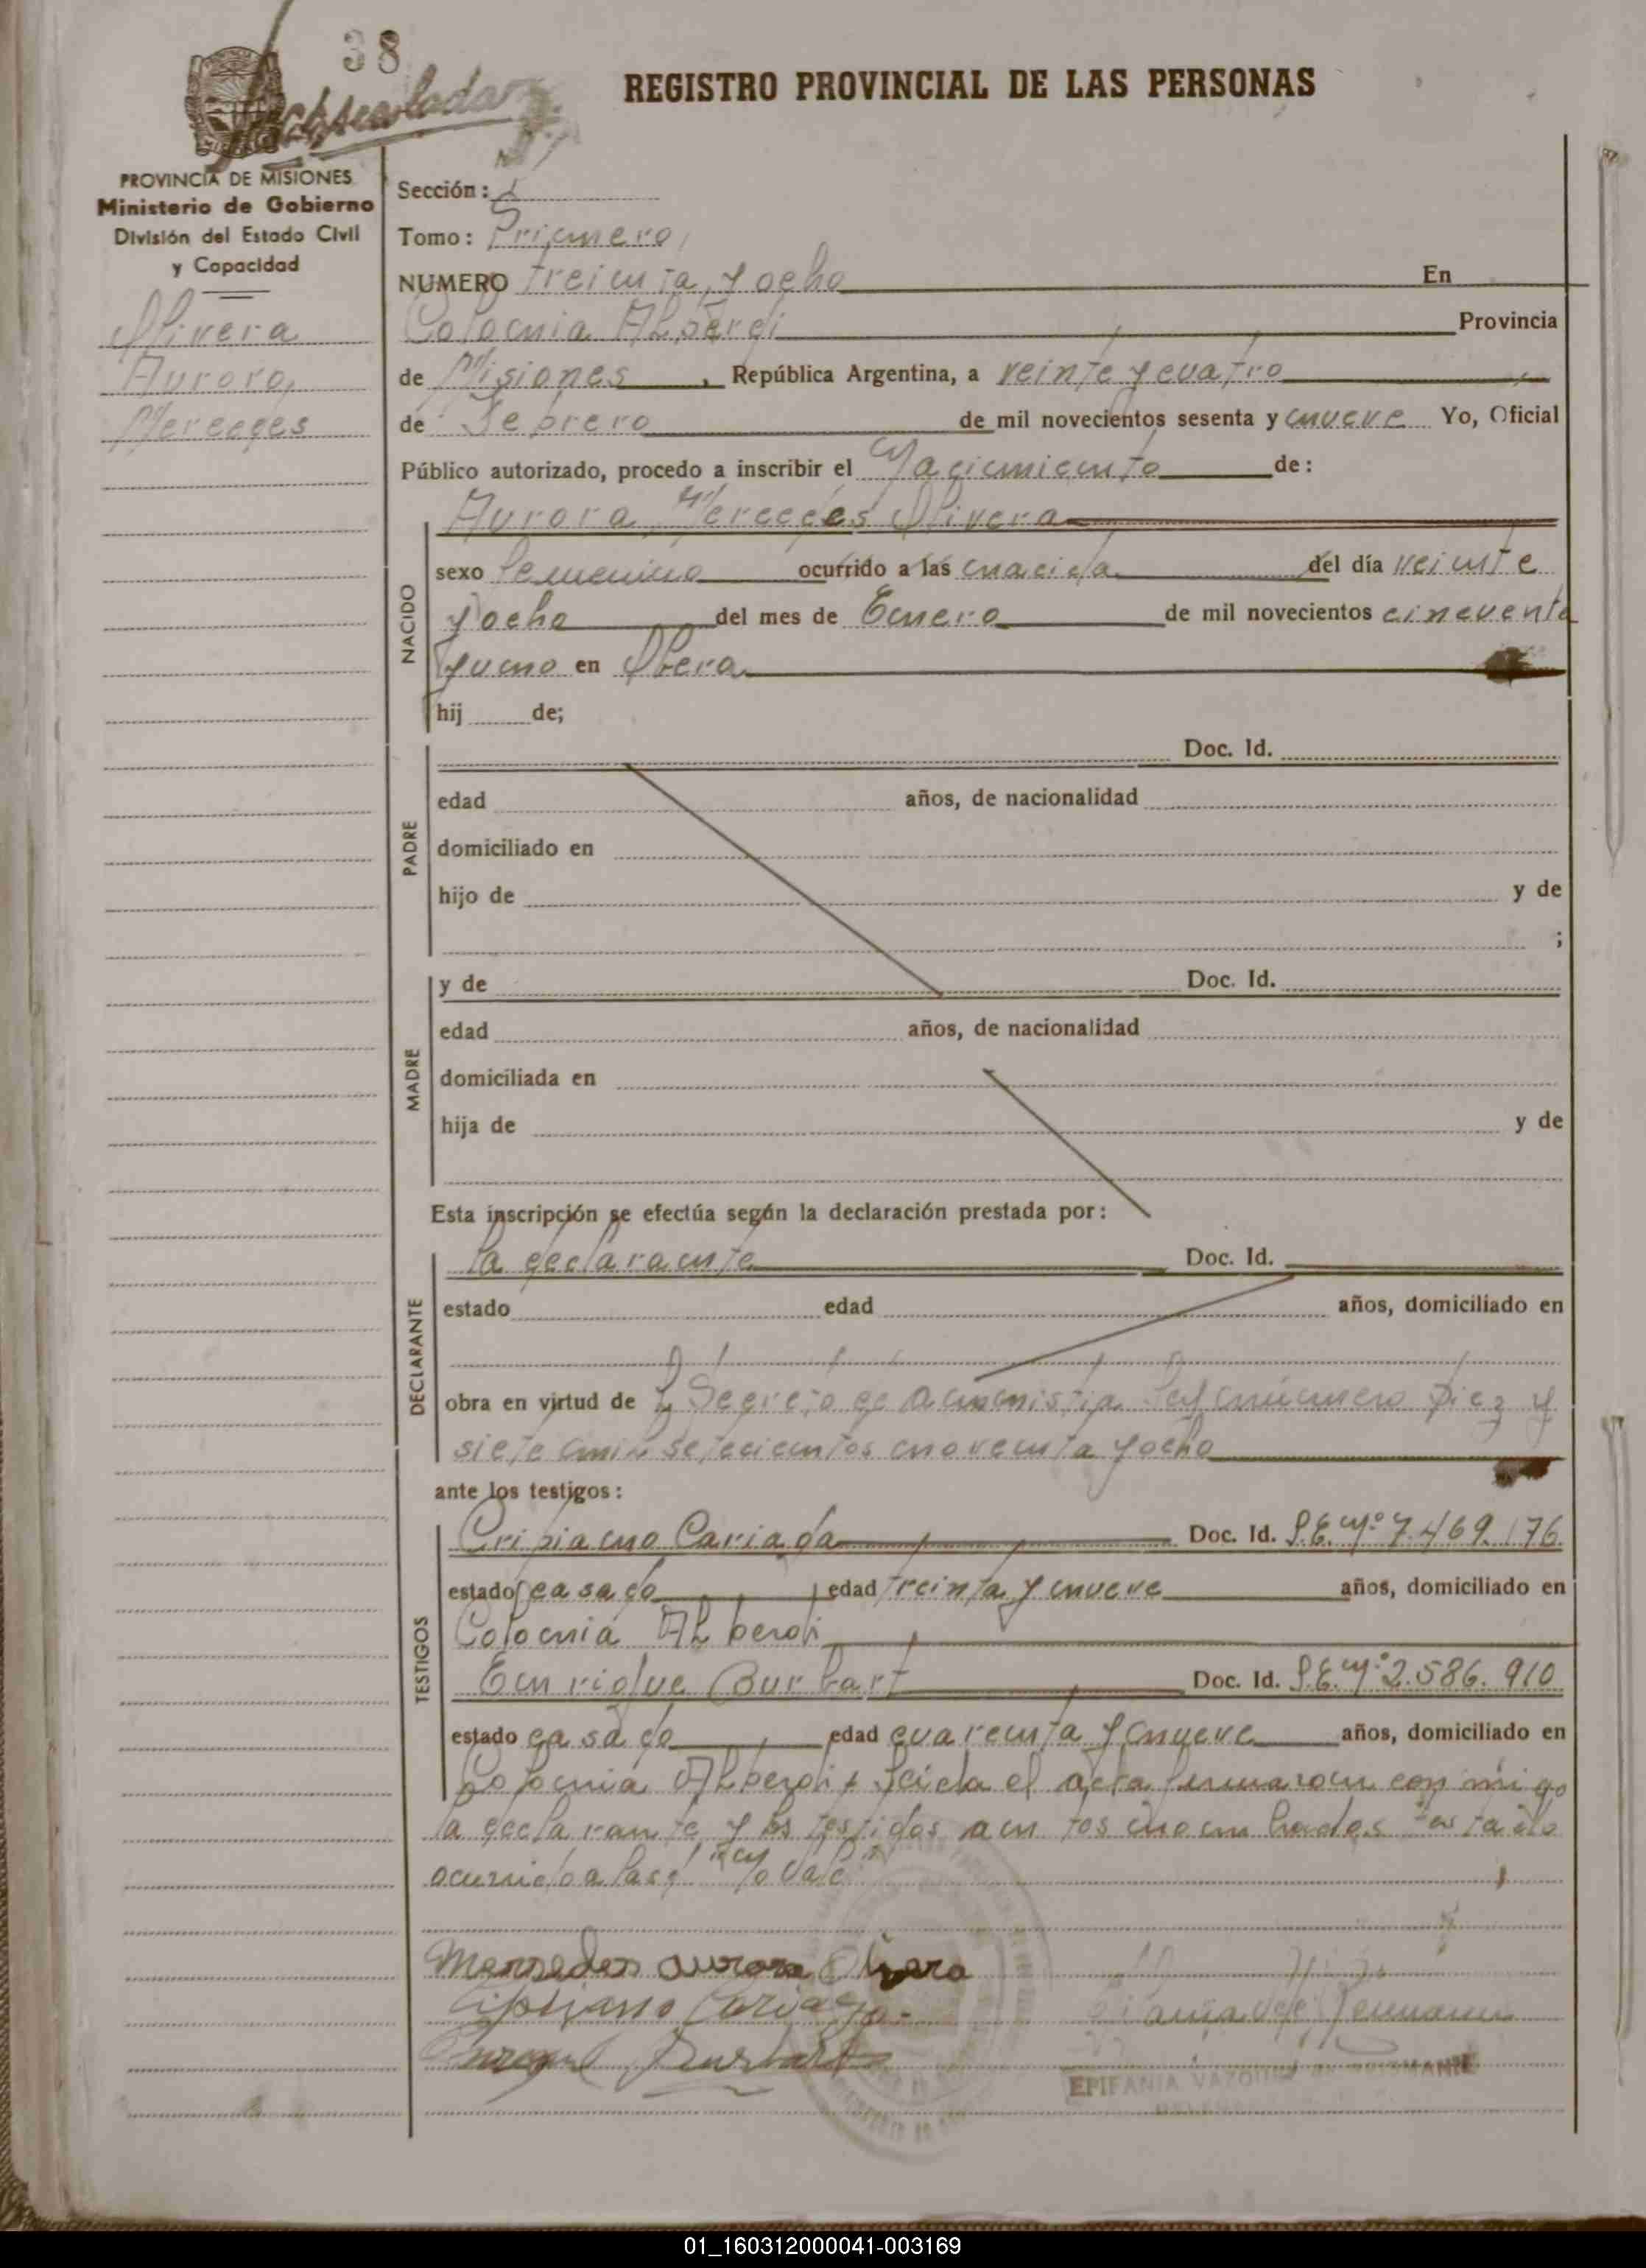 38
REGISTRO PROVINCIAL DE LAS PERSONAS
PROVINCIA DE MISIONES
Ministerio de Gobierno
División del Estado Civil
y Capacidad
Olivera
Aurora,
Mercedes
Sección:
Tomo: Primero,
NUMERO treinta y ocho En
Colonia Alberdi Provincia
de Misiones, República Argentina, a veinte y cuatro
de Febrero de mil novecientos sesenta y nueve Yo, Oficial
Público autorizado, procedo a inscribir el Nacimiento de:
Aurora, Mercedes Olivera
NACIDO
sexo Femenino ocurrido a las nacida del día veinte
y ocho del mes de Enero de mil novecientos cincuenta
y uno en Obera
hij de;
PADRE
Doc. Id.
edad años, de nacionalidad
domiciliado en
hijo de y de
;
MADRE
y de Doc. Id.
edad años, de nacionalidad
domiciliada en
hija de y de
Esta inscripción se efectúa según la declaración prestada por:
DECLARANTE
la declarante Doc. Id.
estado edad años, domiciliado en
obra en virtud de Decreto de amnistia Ley número diez y
siete mil setecientos noventa y ocho
ante los testigos:
TESTIGOS
Cripiano Cariaga Doc. Id. L.E. Nº 7.469.176
estado casado edad treinta y nueve años, domiciliado en
Colonia Alberdi
Enrique Burbart Doc. Id. L.E. Nº 2.586.910
estado casado edad cuarenta y nueve años, domiciliado en
Colonia Alberdi, Leida el acta firmaron con migo
la declarante y los testigos
ocurrido a las "No vale"
Mersedes aurora Olivera
Cipriano Cariaga
EPIFANIA VAZQUEZ
01_160312000041-003169